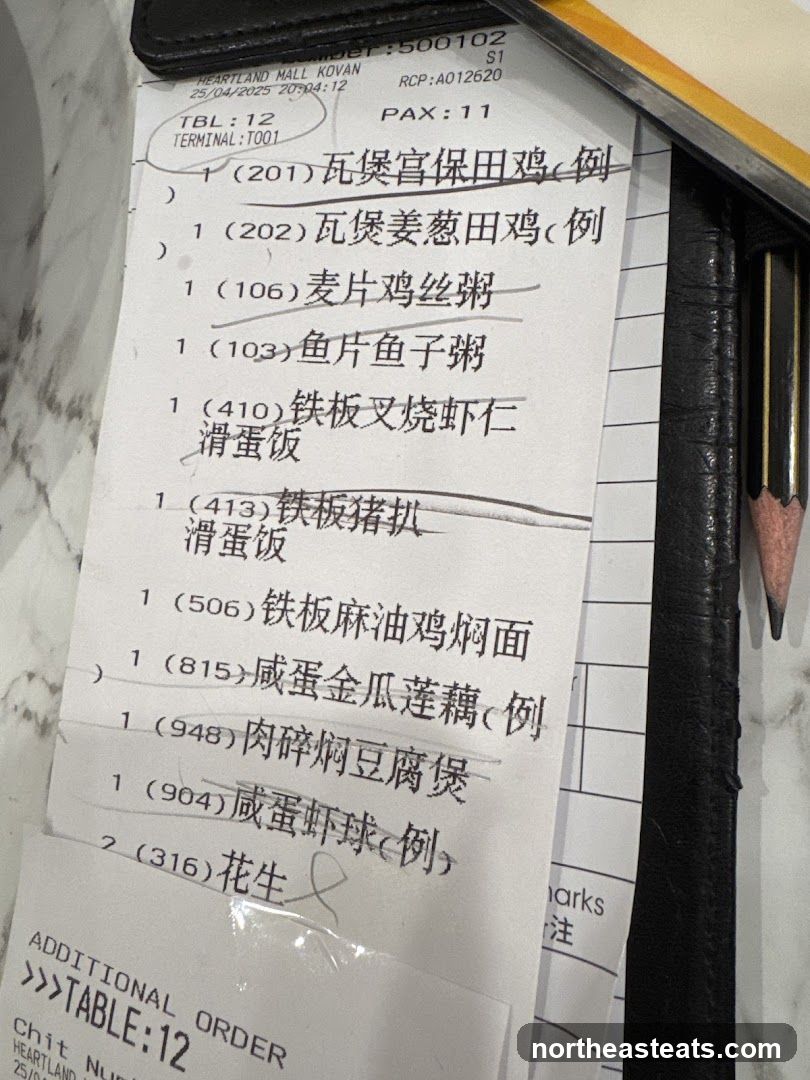 :500102
S1
HEARTLAND MALL KOVAN
25/04/2025 20:04:12
RCP:A012620
TBL:12
PAX:11
TERMINAL:T001
1 (201)瓦煲宫保田鸡(例
)
1 (202)瓦煲姜葱田鸡(例
)
1 (106)麦片鸡丝粥
1 (103)鱼片鱼子粥
1 (410)铁板叉烧虾仁
滑蛋饭
1 (413)铁板猪扒
滑蛋饭
1 (506)铁板麻油鸡焖面
1 (815)咸蛋金瓜莲藕(例
)
1 (948)肉碎焖豆腐煲
1 (904)咸蛋虾球(例)
2 (316)花生
arks
注
ADDITIONAL ORDER
>>>TABLE:12
Chit
HEARTLAND
25/0
northeasteats.com